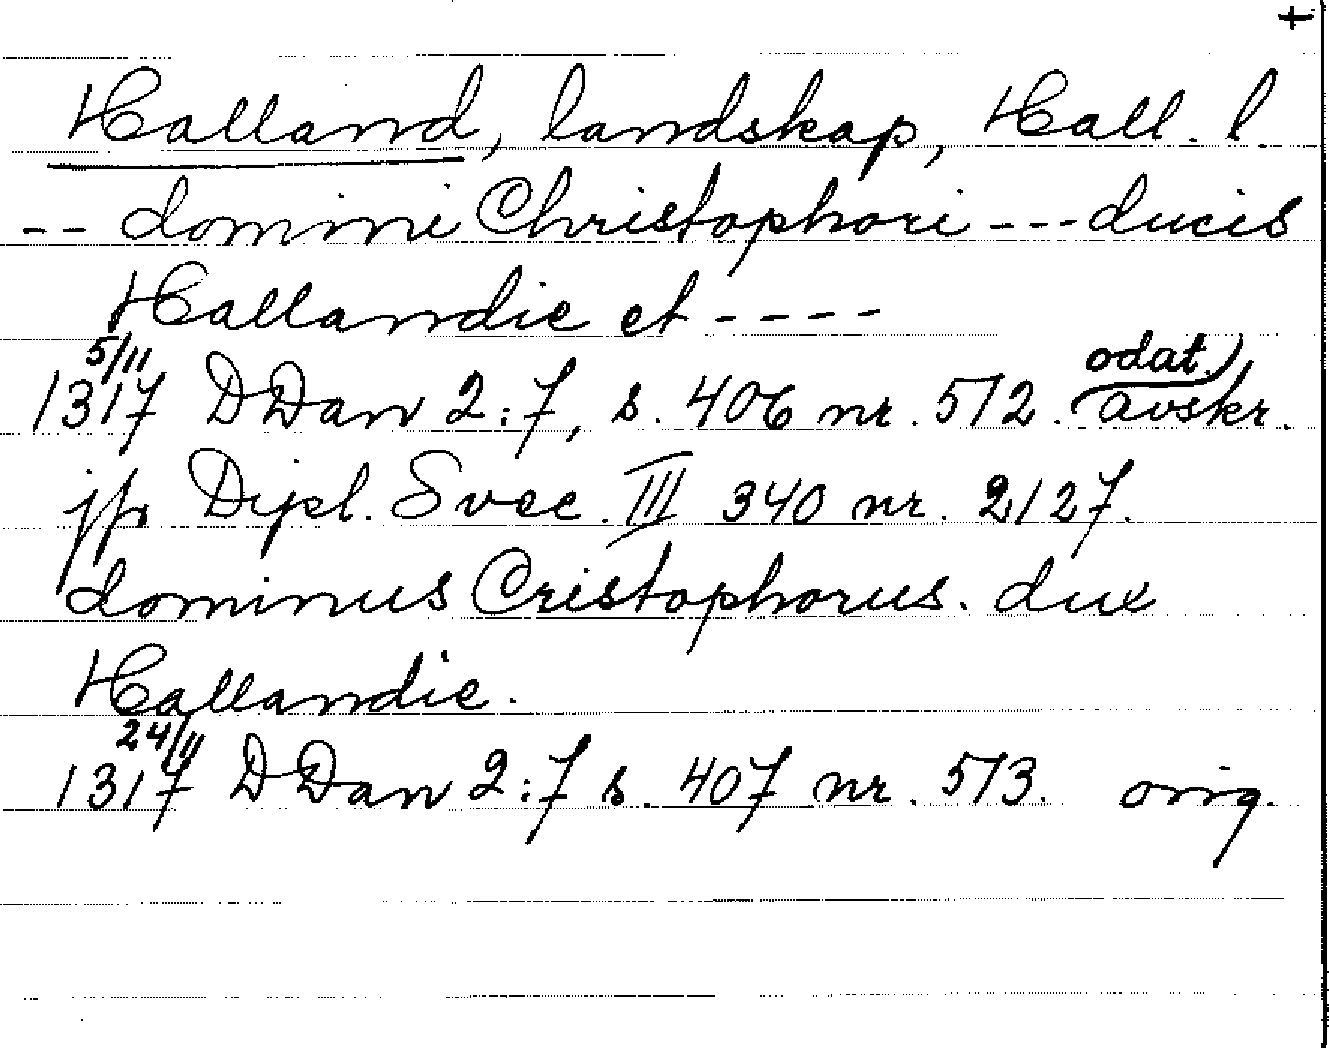 +
Halland, landskap, Hall. l.
-- domini Christophori --- ducis
Hallandie et ----
5/11 odat.
1317 DDan 2:7, s. 406 nr. 512. avskr.
jfr Dipl. Svec. III 340 nr. 2127.
dominus Cristophorus. dux
Hallandie.
24/11
1317 DDan 2:7 s. 407 nr. 513. orig.